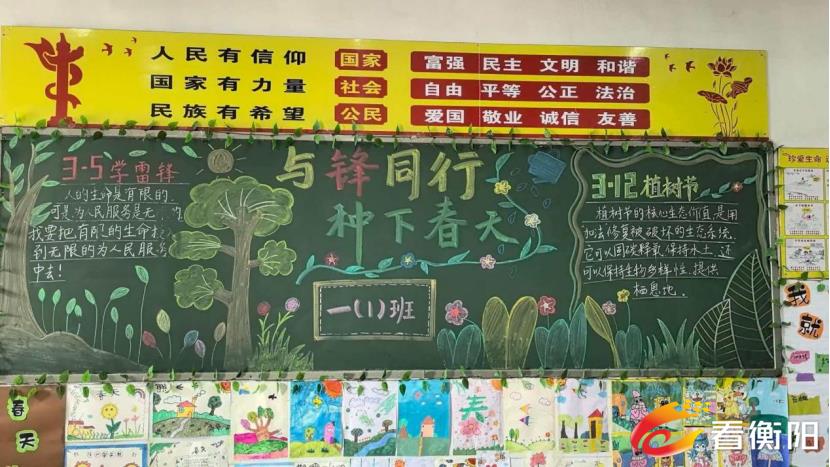 人民有信仰 国家 富强 民主 文明 和谐
国家有力量 社会 自由 平等 公正 法治
民族有希望 公民 爱国 敬业 诚信 友善
3·5学雷锋
人的生命是有限的.
可是为人民服务是无
我要把有限的生命
到无限的为人民服
中去!
与锋同行
种下春天
一(1)班
3·12植树节
植树节的核心生态价值是用
加法修复被破坏的生态系统.
它可以固碳释氧保持水土,还
可以保持生物多样性,提供
栖息地。
珍爱生命
我
就
春
天
春
看衡阳